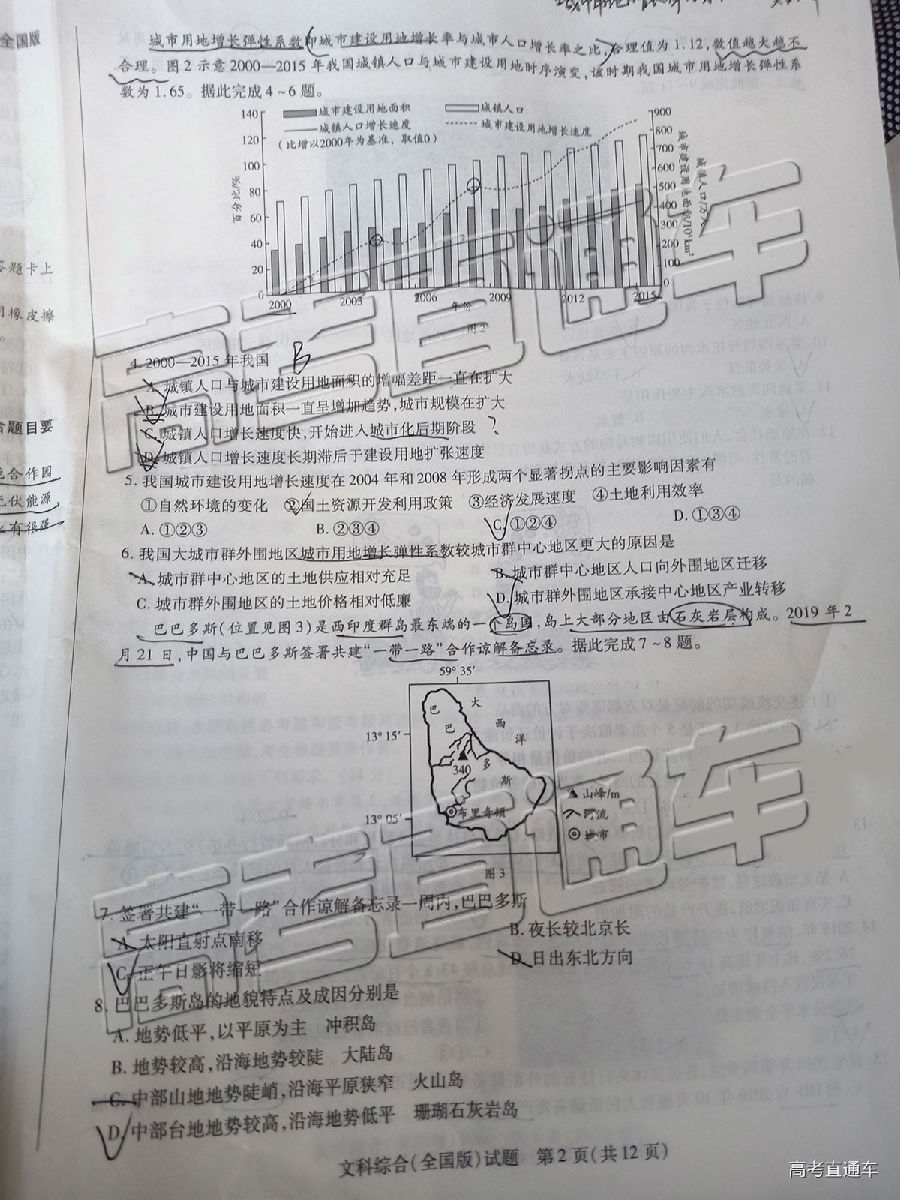 全国版
城市用地增长弹性系数即城市建设用地增长率与城市人口增长率之比,合理值为1.12,数值越大越不
合理。图2示意2000—2015年我国城镇人口与城市建设用地时序演变,该时期我国城市用地增长弹性系
数为1.65。据此完成4~6题。
城市建设用地面积 城镇人口
城镇人口增长速度 城市建设用地增长速度
(比增以2000年为基准,取值0)
百分比/%
140
120
100
80
60
40
20
0
900
800
700
600
500
400
300
200
100
0
2000 2003 2006 2009 2012 2015
年份
图2
答题卡上
用橡皮擦
合题目要
色合作园
光伏能源
4. 2000—2015年我国 B
A. 城镇人口与城市建设用地面积的增幅差距一直在扩大
B. 城市建设用地面积一直呈增加趋势,城市规模在扩大
C. 城镇人口增长速度快,开始进入城市化后期阶段 ?
D. 城镇人口增长速度长期滞后于建设用地扩张速度
5. 我国城市建设用地增长速度在2004年和2008年形成两个显著拐点的主要影响因素有
①自然环境的变化 ②国土资源开发利用政策 ③经济发展速度 ④土地利用效率
A. ①②③ B. ②③④ C. ①②④ D. ①③④
6. 我国大城市群外围地区城市用地增长弹性系数较城市群中心地区更大的原因是
A. 城市群中心地区的土地供应相对充足 B. 城市群中心地区人口向外围地区迁移
C. 城市群外围地区的土地价格相对低廉 D. 城市群外围地区承接中心地区产业转移
巴巴多斯(位置见图3)是西印度群岛最东端的一个岛国,岛上大部分地区由石灰岩层构成。2019年2
月21日,中国与巴巴多斯签署共建“一带一路”合作谅解备忘录。据此完成7~8题。
59° 35′
13° 15′
13° 05′
巴
巴
多
斯
大
西
洋
340
布里奇顿
山峰/m
河流
城市
图3
7. 签署共建“一带一路”合作谅解备忘录一周内,巴巴多斯
A. 太阳直射点南移 B. 夜长较北京长
C. 正午日影将缩短 D. 日出东北方向
8. 巴巴多斯岛的地貌特点及成因分别是
A. 地势低平,以平原为主 冲积岛
B. 地势较高,沿海地势较陡 大陆岛
C. 中部山地地势陡峭,沿海平原狭窄 火山岛
D. 中部台地地势较高,沿海地势低平 珊瑚石灰岩岛
文科综合(全国版)试题 第2页(共12页)
高考直通车
高考直通车
高考直通车